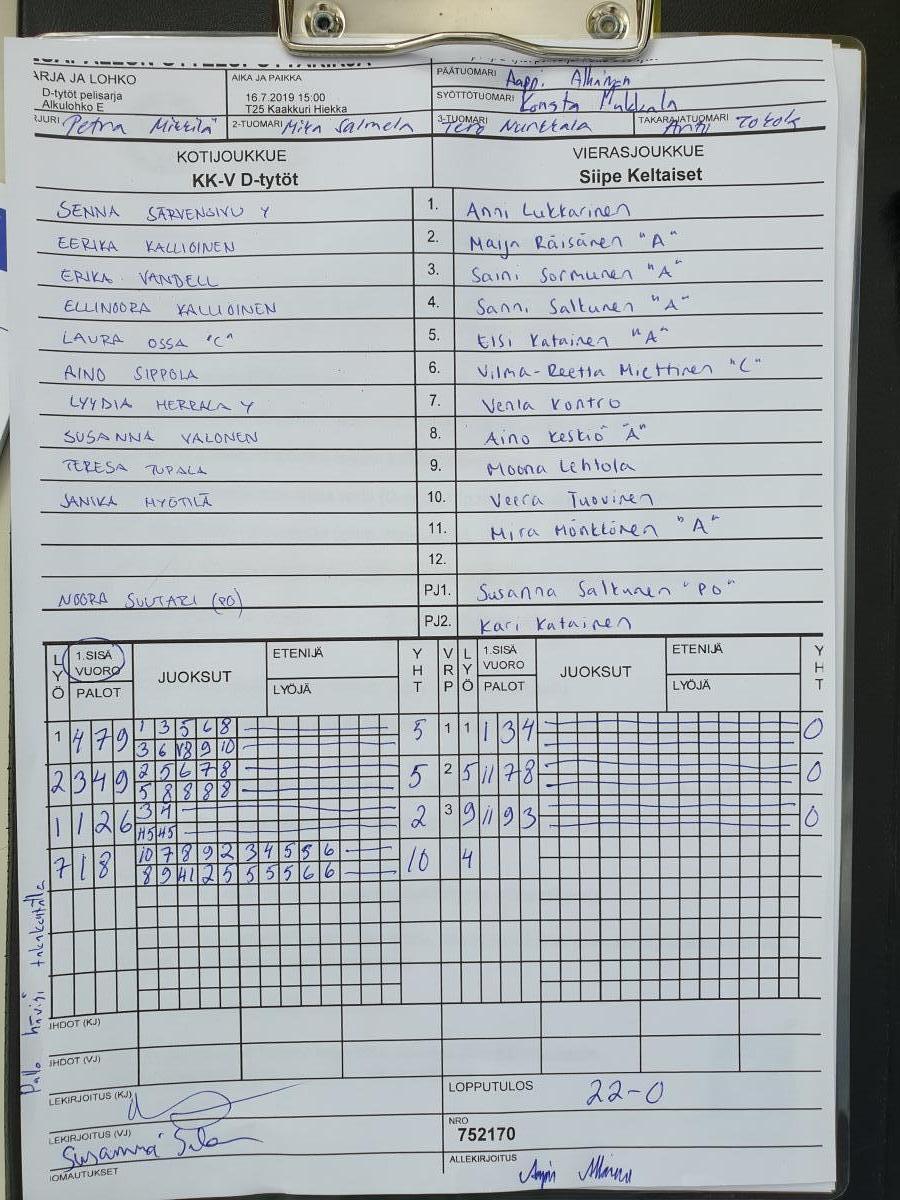 ARJA JA LOHKO
D-tytöt pelisarja
Alkulohko E
AIKA JA PAIKKA
16.7.2019 15:00
T25 Kaakkuri Hiekka
PÄÄTUOMARI Aappi
SYÖTTÖTUOMARI Konsta
JURI Petra Mikkilä
2-TUOMARI Mika Salmela
3-TUOMARI Tero Nurkkala
TAKARAJATUOMARI Antti
KOTIJOUKKUE
KK-V D-tytöt
VIERASJOUKKUE
Siipe Keltaiset
SENNA SÄRVENSIVU Y 1. Anni Lukkarinen
EERIKA KALLIOINEN 2. Maija Räisänen "A"
ERIKA VANDELL 3. Saini Sormunen "A"
ELLINOORA KALLIOINEN 4. Sanni Saltunen "A"
LAURA OSSA "C" 5. Elsi Katainen "A"
AINO SIPPOLA 6. Vilma-Reetta Miettinen "C"
LYYDIA HERRALA Y 7. Venla Kontro
SUSANNA VALONEN 8. Aino Keskiö "A"
TERESA TUPALA 9. Moona Lehtola
JANIKA MYÖTILÄ 10. Veera Tuovinen
11. Mira Mönkkönen "A"
12.
NOORA SUUTARI (PO) PJ1. Susanna Saltunen "PO"
PJ2. Kari Katainen
LYÖ 1.SISÄ VUORO PALOT JUOKSUT ETENIJÄ LYÖJÄ YHT VRP LYÖ 1.SISÄ VUORO PALOT JUOKSUT ETENIJÄ LYÖJÄ YHT
1 4 7 9 1 3 5 6 8 5 1 1 1 3 4 0
3 6 V8 9 10
2 3 4 9 2 5 6 7 8 5 2 5 11 7 8 0
5 8 8 8 8
1 1 2 6 3 4 2 3 9 11 9 3 0
4
7 1 8 10 7 8 9 2 3 4 5 5 6 10
8 9 2 5 5 5 5 6 6
Pallo hävisi takakentälle
HDOT (KJ)
HDOT (VJ)
LEKIRJOITUS (KJ)
LOPPUTULOS 22-0
LEKIRJOITUS (VJ) Susanna
NRO
752170
IOMAUTUKSET
ALLEKIRJOITUS